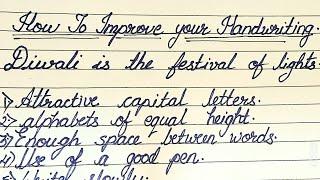 How To Improve your Handwriting.
Diwali is the festival of lights.
1) Attractive capital letters.
2) alphabets of equal height.
3) Enough space between words.
4) Use of a good pen.
5) Write slowly.